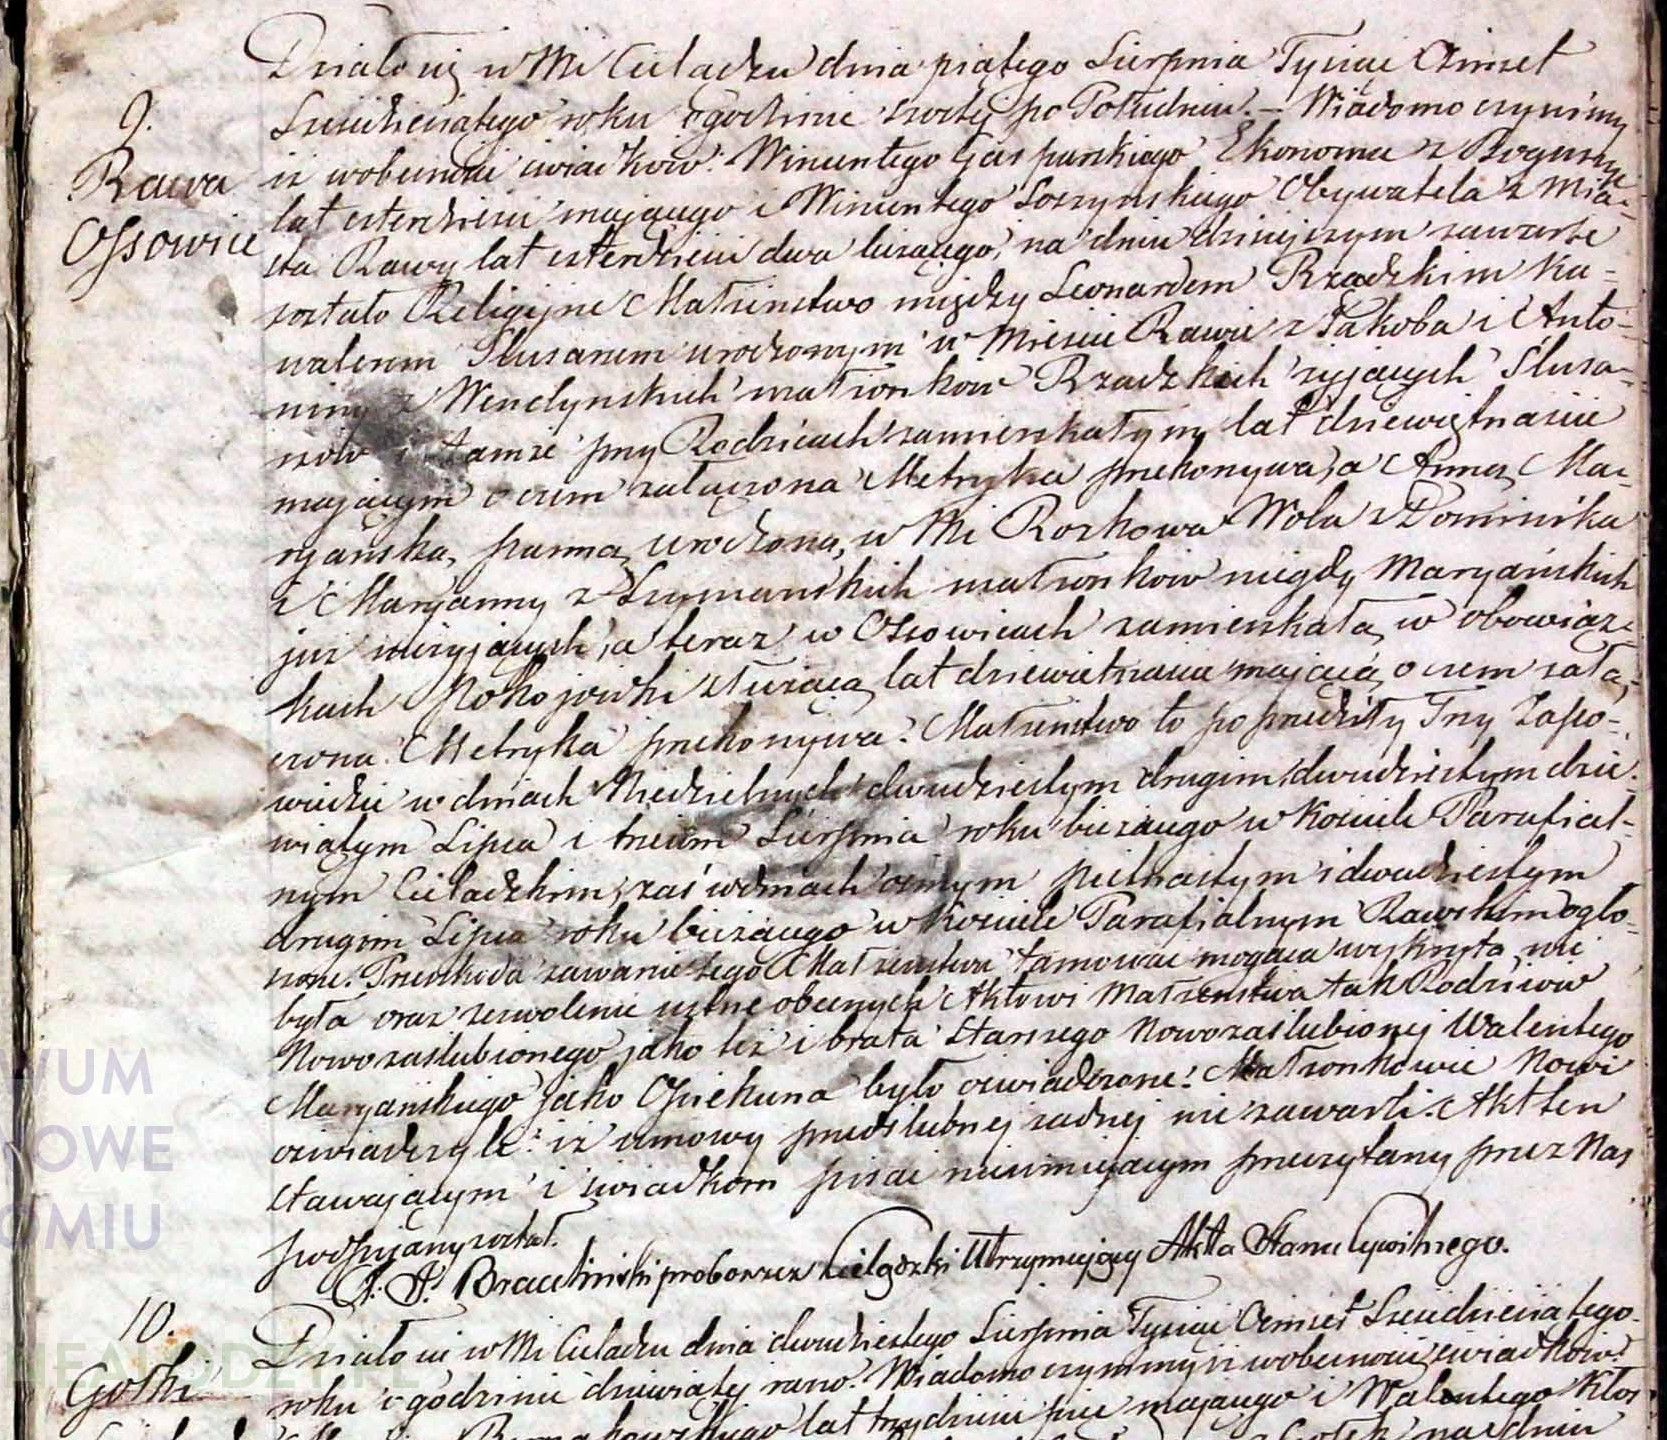 Działo się w Wsi Cielądzu dnia piątego Sierpnia Tysiąc Ośmset
9. Sześćdziesiątego roku o godzinie szóstej po Południu. – Wiadomo czynimy
Rawa iż wobecności świadków: Wincentego Gasparskiego Ekonoma z Boguszyc
Ossowice lat czterdzieści mającego i Wincentego Soszynskiego Obywatela z Mia-
sta Rawy lat czterdzieści dwa liczącego, na dniu dzisiejszym zawarte
zostało Religijne Małżeństwo między Leonardem Rządzkim Ka-
walerem Ślusarzem urodzonym w Mieście Rawie z Jakoba i Anto-
niny z małżonków Rzadzkich żyjących Ślusa-
rzów i tamże przy Rodzicach zamieszkałym, lat dziewiętnaście
mającym o czem załączona Metryka przekonywa, a Anną Ma-
ryańską, panną, urodzoną, w Wsi Roszkowa Wola z Dominika
i Maryanny z Szymańskich małżonków niegdy Maryańskich
już nieżyjących, a teraz w Ossowicach zamieszkałą, w obowiąz-
kach Pokojówki służącą, lat dziewietnaście mającą, o czem załą-
czona Metryka przekonywa. Małżeństwo to poprzedziły Trzy Zapo-
wiedzie w dniach Niedzielnych dwudziestym drugim, dwudziestym dzie-
wiątym Lipca i trzecim Sierpnia roku bieżącego w Kościele Parafial-
nym Cielądzkim, zaś w dniach ósmym piętnastym i dwudziestym
drugim Lipca roku bieżącego w Kościele Parafialnym Rawskim ogło-
szone. Przeszkoda zawarcie tego Małżeństwa tamować mogąca wynikła nie
była oraz zezwolenie ustne obecnych Aktowi Małżeństwa tak Rodziców
Nowozaślubionego jako też i brata Starszego Nowozaślubionej Walentego
Maryańskiego jako Opiekuna było oświadczone. Małżonkowie Nowi
oświadczyli: iż umowy przedślubnej żadnej nie zawarli. Akt ten
stawającym i świadkom pisać nieumiejącym przeczytany przez Nas
podpisany został.
proboszcz Cielądzki Utrzymujący Akta Stanu Cywilnego.
10. Działo się w Wsi Cielądzu dnia dwudziestego Sierpnia Tysiąc Ośmset Sześćdziesiątego
Gołki roku o godzinie dziewiątej rano. Wiadomo czynimy iż wobecności świadków:
lat trzydzieści pięć mającego i Walentego Kłos
na dniu
WUM
NOWE
OMIU